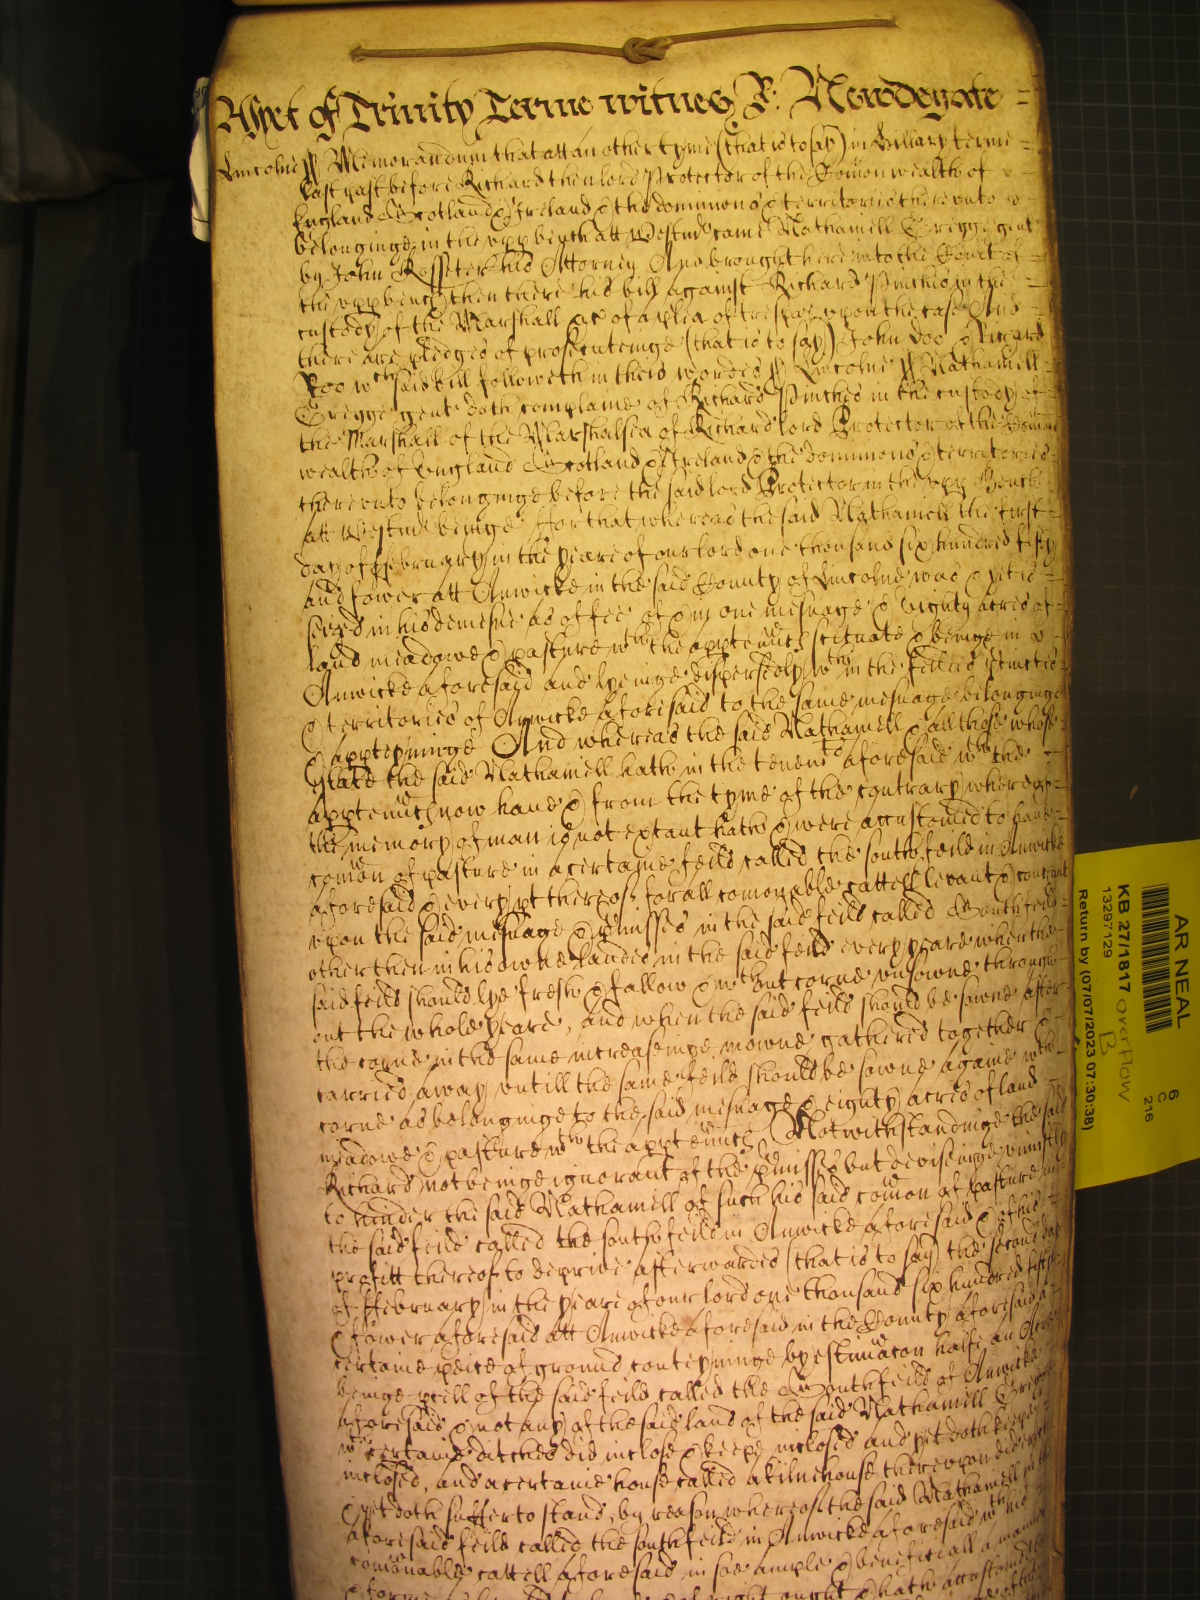 Yet of Trinity Terme witnes R: Newdegate
Lincolne ss Memorandum that att an other tyme (that is to say) in Hillary terme
last past before Richard then lord Protector of the Comonwealth of
England Scotland & Ireland & the dominions & territories thereunto
belonginge in the upp bench att Westmr came Nathaniell Gregge gent
by John Rosseter his Attorney And brought here into the Court of
the upp bench then there his bill against Richard Pinches in the
custody of the Marshall &c of a plea of trespas upon the case And
there are pledges of prosecuteinge (that is to say) John Doo & Richard
Roo wch said bill followeth in theis wordes ss Lincolne ss Nathaniell
Gregge gent doth complaine of Richard Pinches in the custody of
the Marshall of the Marshalsea of Richard lord Protector of the Comon
wealth of England Scotland & Ireland & the dominions & territories
thereunto belonginge before the said lord Protector in the upp Bench
att Westmr beinge ffor that whereas the said Nathaniell the first
day of ffebruary in the yeare of our lord one thousand six hundred fifty
and fower att Anwicke in the said County of Lincolne was & yet is
seized in his demesne as of fee of & in one mesuage & Eighty acres of
land meadowe & pasture wth the apptennces scituate & beinge in
Anwicke aforesaid and lyeinge dispersedly wthin the feilds precincts
& territories of Anwicke aforesaid to the same mesuage belonginge
& appteyninge And whereas the said Nathaniell & all those whose
Estate the said Nathaniell hath in the tenemts aforesaid wth the
apptennces now have & from the tyme of the contrary whereof
the memory of man is not extant hath & were accustomed to have
comon of pasture in a certaine feild called the south feild in Anwicke
aforesaid & every pt thereof for all comonable cattell levant & couchant
upon the said mesuage & pmisses in the said feild called Southfeild
other then in his owne landes in the said feild every yeare when the
said feild should lye fresh & fallow & wthout corne unsowne through
out the whole yeare, and when the said feild should be sowne after
the corne in the same increaseinge, mowne gathered together &
carried away untill the same feild should be sowne againe wth
corne as belonginge to the said mesuage & eighty acres of land
meadowe & pasture wth the apptennces Notwithstandinge the said
Richard not beinge ignorant of the pmisses but devisinge unjustly
to hinder the said Nathaniell of such his said comon of pasture in
the said feild called the south feild in Anwicke aforesaid & of his
profitt thereof to deprive afterwardes (that is to say) the second day
of ffebruary in the yeare of our lord one thousand six hundred fifty
& fower aforesaid att Anwicke aforesaid in the County aforesaid a
certaine peice of ground conteyninge by estimacon halfe an Acre
beinge pcell of the said feild called the Southfeild of Anwicke
aforesaid & not any of the said land of the said Nathaniell Gregge
wth certaine ditches did inclose & keepe inclosed and yet doth keepe
inclosed, and a certaine house called a kilnehouse thereupon did erect
& yet doth suffer to stand, by reason whereof the said Nathaniell in the
aforesaid feild called the southfeild in Anwicke aforesaid wth his
comonable cattell aforesaid in soe ample & beneficiall a manner
& forme right ought & hath accustomed
AR NEAL
6
C
216
KB 27/1817 overflow
13297129
B
Return by (07/07/2023 07:30:38)